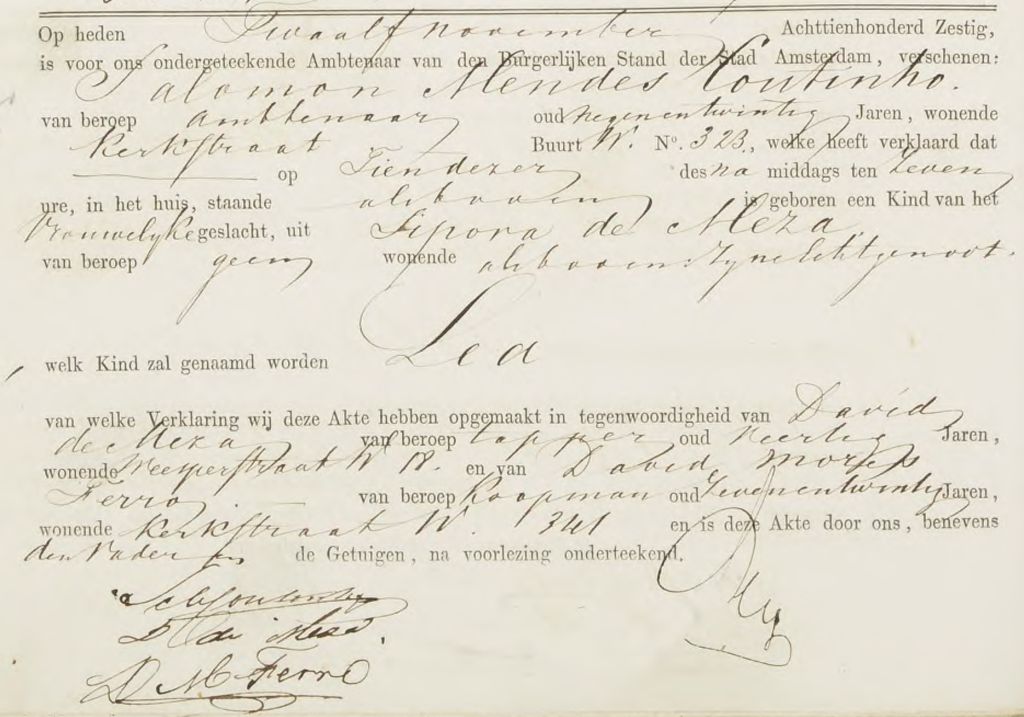 Op heden Twaalf november Achttienhonderd Zestig,
is voor ons ondergeteekende Ambtenaar van den Burgerlijken Stand der Stad Amsterdam, verschenen:
Salomon Mendes Coutinho.
van beroep ambtenaar oud negenentwintig Jaren, wonende
Kerkstraat Buurt W. No. 323, welke heeft verklaard dat
op Tien dezer des na middags ten zeven
ure, in het huis, staande alsboven is geboren een Kind van het
Vrouwelyke geslacht, uit Sipora de Meza,
van beroep geen wonende alsboven: zyne Echtgenoot.
welk Kind zal genaamd worden Lea
van welke Verklaring wij deze Akte hebben opgemaakt in tegenwoordigheid van David
de Meza van beroep tapper oud veertig Jaren,
wonende Weesperstraat W 18. en van David Morses
Ferro van beroep Koopman oud Zevenentwintig Jaren,
wonende Kerkstraat W. 341 en is deze Akte door ons, benevens
den Vader en de Getuigen, na voorlezing onderteekend.
D de Meza.
D M Ferro